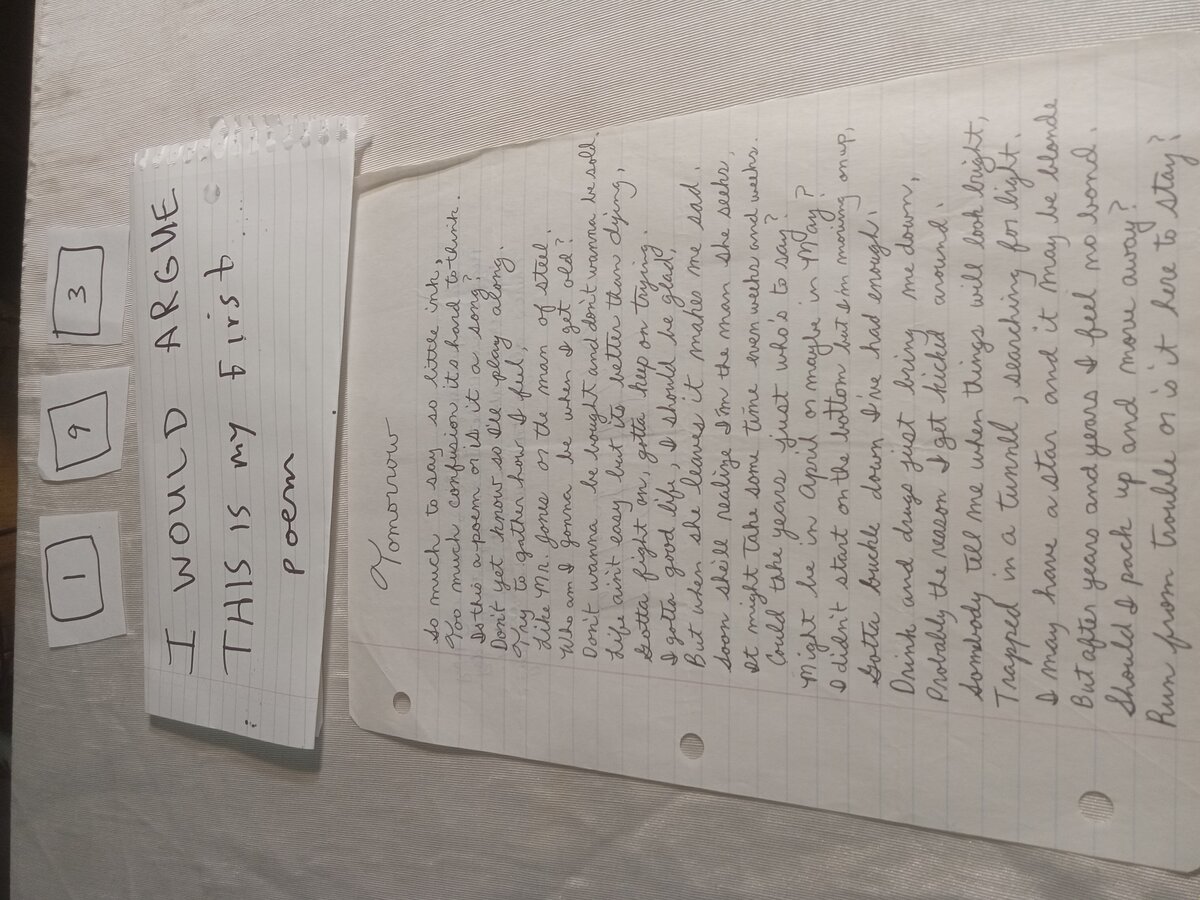 1 9 3
I WOULD ARGUE
THIS IS my first
poem
Tomorrow
So much to say so little ink,
Too much confusion it's hard to think.
Is this a poem or is it a song?
Don't yet know so I'll play along.
Try to gather how I feel,
Like Mr. Jones or the man of steel.
Who am I gonna be when I get old?
Don't wanna be bought and don't wanna be sold.
Life ain't easy but its better than dying,
Gotta fight on, gotta keep on trying.
I gotta good life, I should be glad,
But when she leaves it makes me sad.
Soon she'll realize I'm the man she seeks,
It might take some time even weeks and weeks.
Could take years just who's to say?
Might be in April or maybe in May?
I didn't start on the bottom but I'm moving on up,
Gotta buckle down I've had enough.
Drink and drugs just bring me down,
Probably the reason I get kicked around.
Somebody tell me when things will look bright,
Trapped in a tunnel, searching for light.
I may have a star and it may be blonde
But after years and years I feel no bond.
Should I pack up and move away?
Run from trouble or is it here to stay?